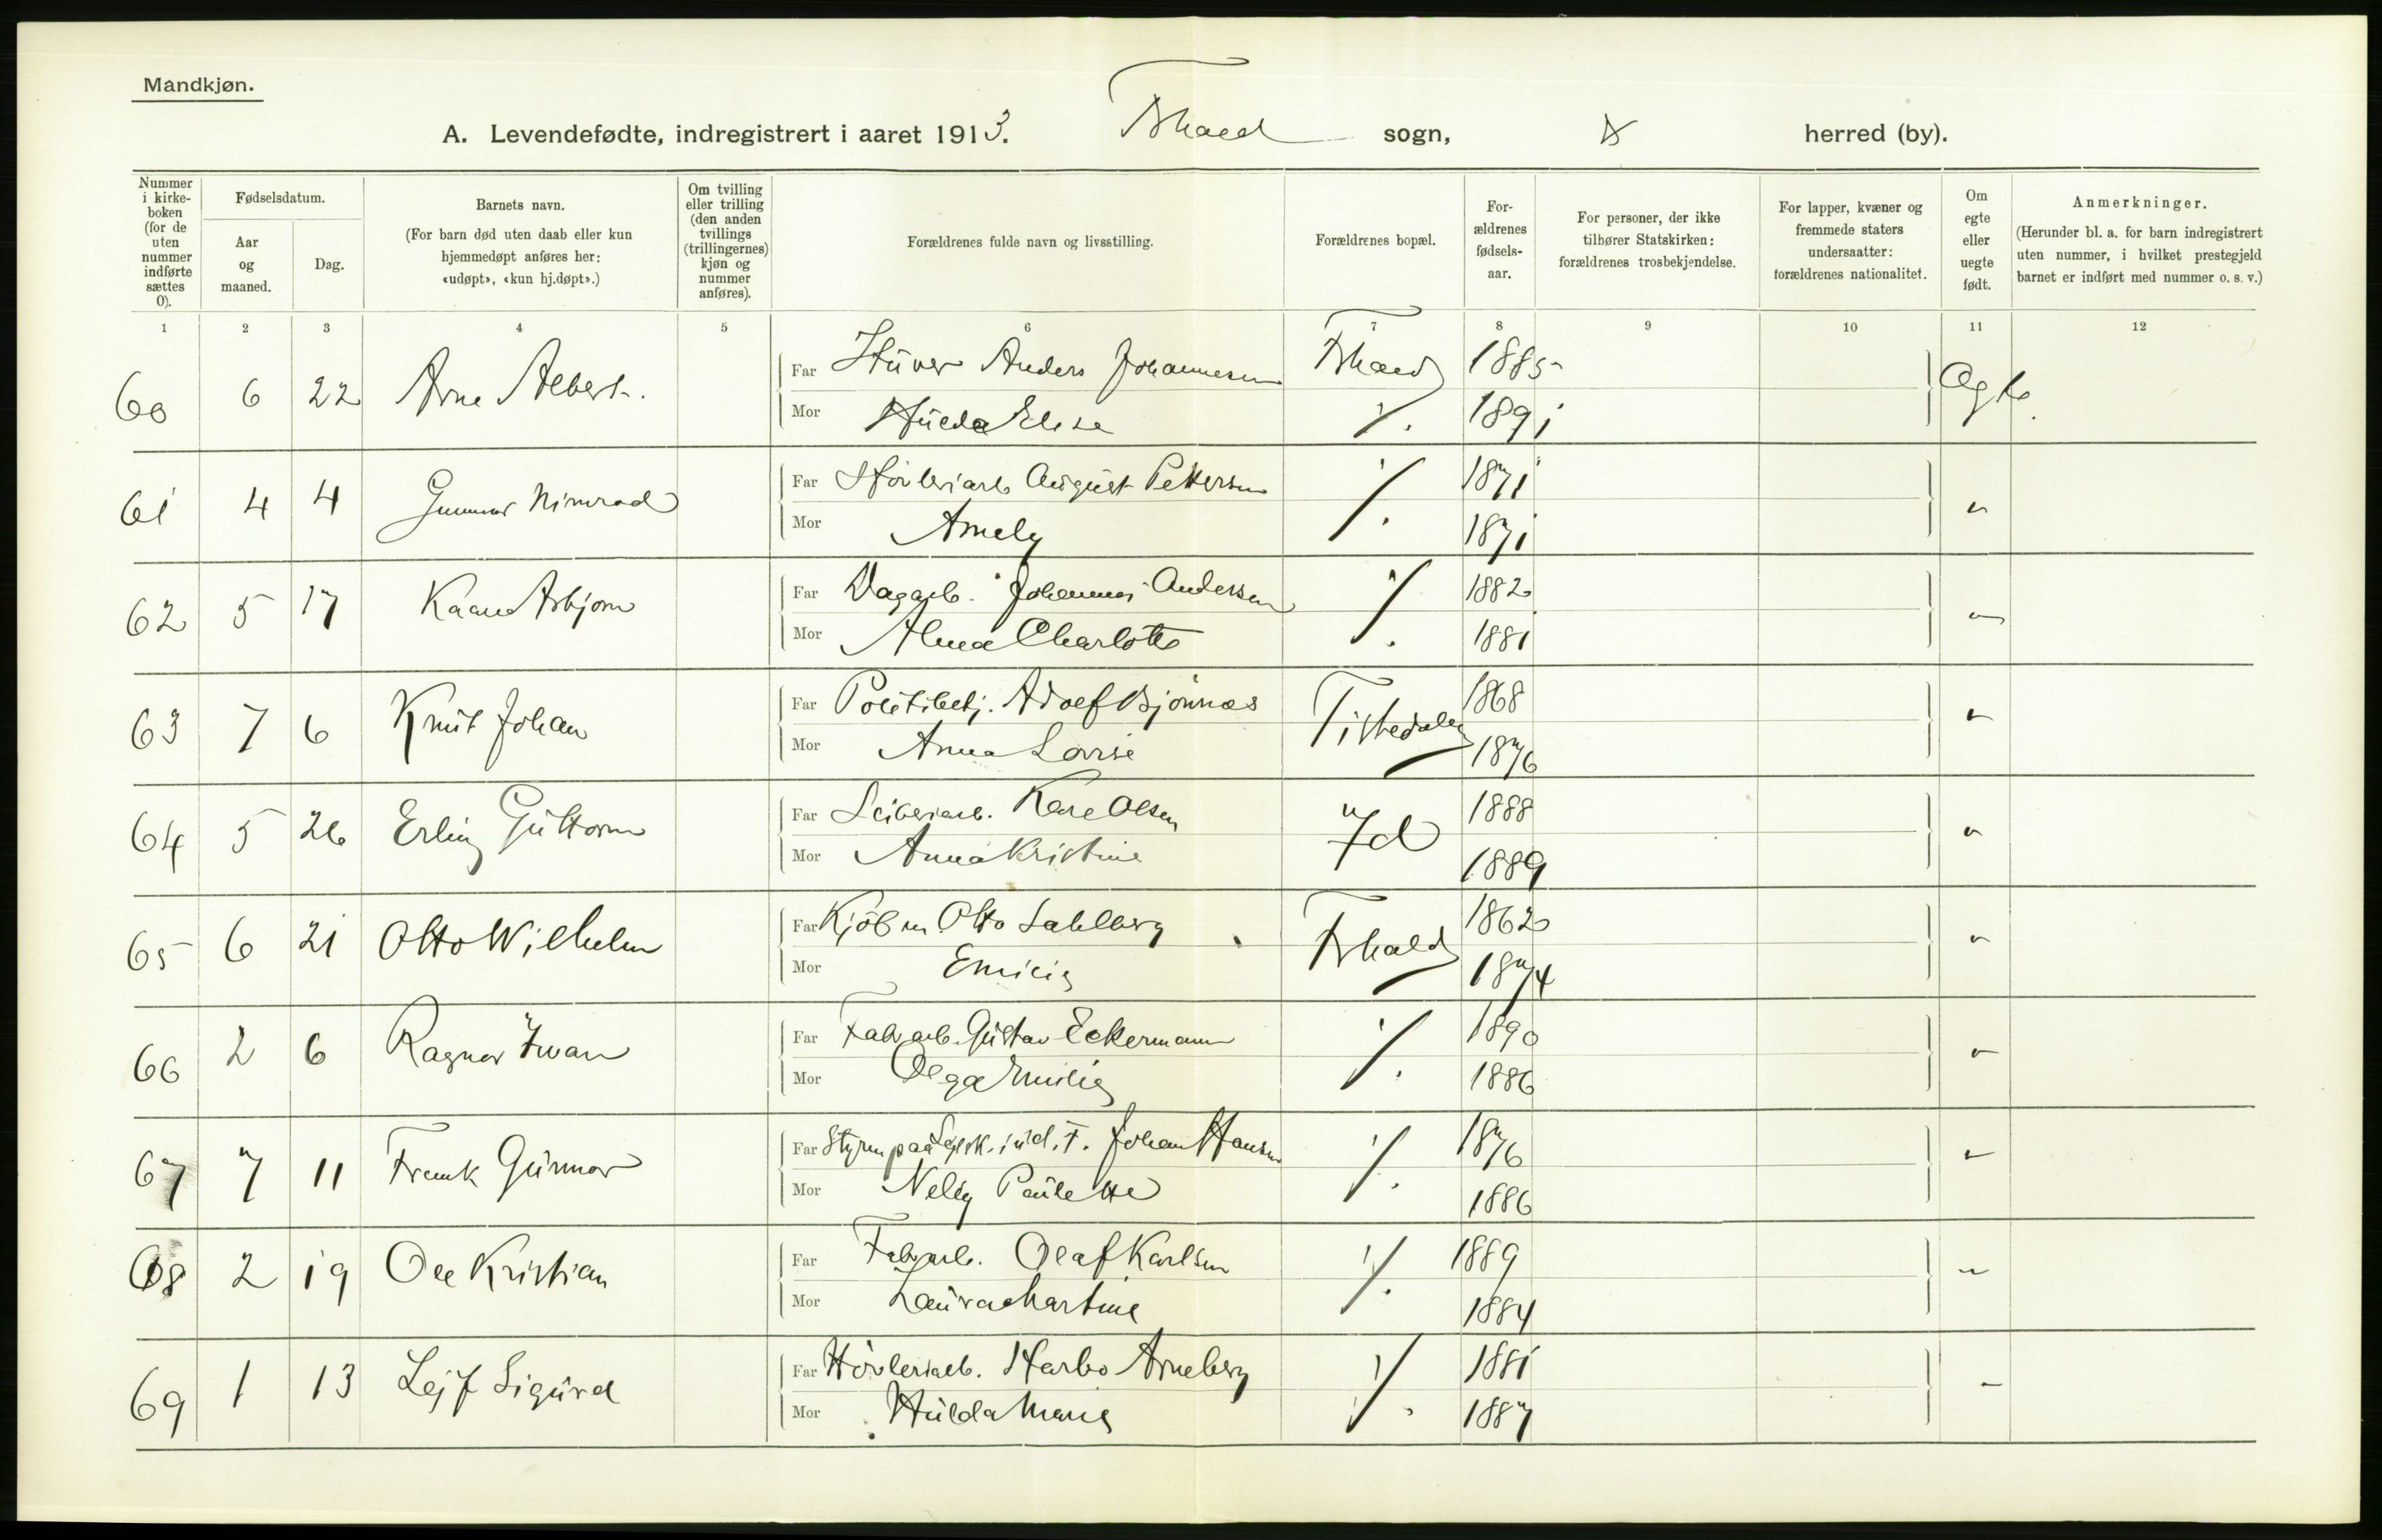 Mandkjøn.
A. Levendefødte, indregistrert i aaret 1913. Frhald sogn, herred (by).
Nummer i kirke-boken (for de uten nummer indførte sættes 0).
Fødselsdatum.
Aar og maaned.
Dag.
Barnets navn.
(For barn død uten daab eller kun hjemmedøpt anføres her: «udøpt», «kun hj.døpt».)
Om tvilling eller trilling (den anden tvillings (trillingernes) kjøn og nummer anføres).
Forældrenes fulde navn og livsstilling.
Forældrenes bopæl.
For-ældrenes fødsels-aar.
For personer, der ikke tilhører Statskirken: forældrenes trosbekjendelse.
For lapper, kvæner og fremmede staters undersaatter: forældrenes nationalitet.
Om egte eller uegte født.
Anmerkninger.
(Herunder bl. a. for barn indregistrert uten nummer, i hvilket prestegjeld barnet er indført med nummer o. s. v.)
1 2 3 4 5 6 7 8 9 10 11 12
60 6 22 Arne Albert. Far Stuver Anders Johannesen Frhald 1885 Ægte
Mor Hulda Elise 1891
61 4 4 Gunnar Nimrod Far Høvleriarb August Pettersen 1871 "
Mor Amely 1871
62 5 17 Kaare Asbjørn Far Dagarb. Johannes Andersen 1882 "
Mor Alma Charlotte 1881
63 7 6 Knut Johan Far Politibetj. Adolf Bjønnæs Tistedalen 1868 "
Mor Anna Lovise 1876
64 5 26 Erling Guttorm Far Sliberiarb. Karl Olsen Id 1888 "
Mor Anna Kristine 1889
65 6 21 Otto Wilhelm Far Kjøbm. Otto Sahlberg Frhald 1862 "
Mor Emilie 1874
66 2 6 Ragnar Iwan Far Fabarb. Gustav Eckermann 1890 "
Mor Olga Emilie 1886
67 7 11 Frank Gunnar Far Styrm paa Johan Hansen 1876 "
Mor Nelly Paulette 1886
68 2 19 Ole Kristian Far Fabarb. Olaf Karlsen 1889 "
Mor Laura Martine 1884
69 1 13 Lejf Sigurd Far Høvleriarb. Harbo Arneberg 1881 "
Mor Hulda Marie 1887